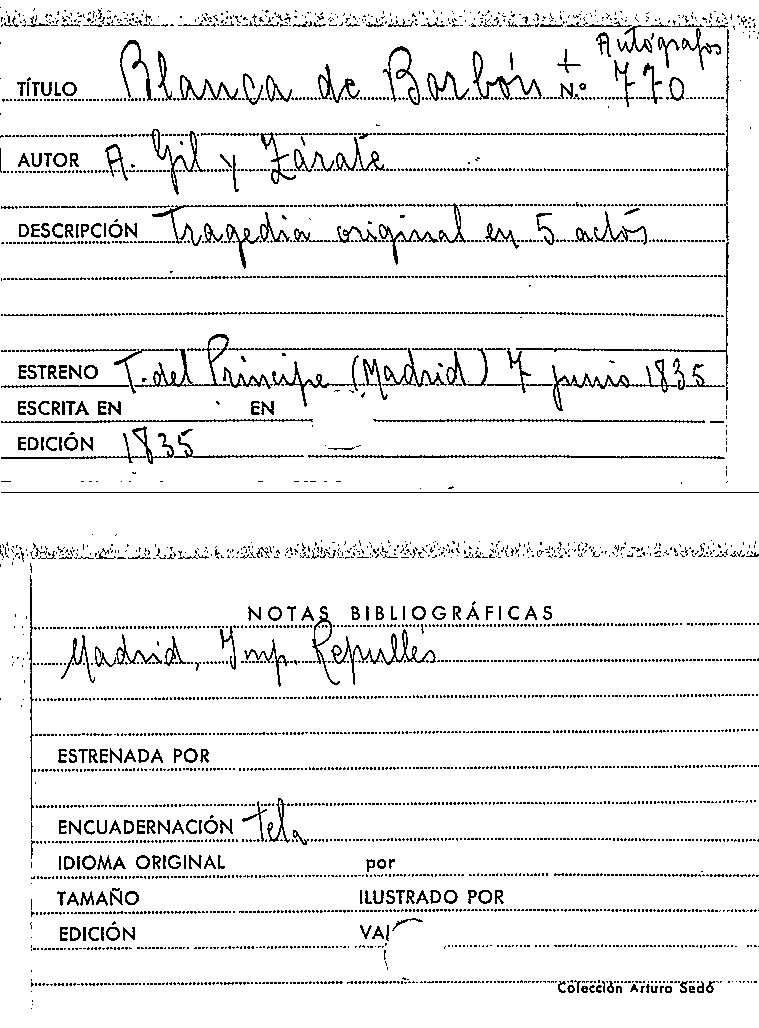 Autógrafos
TÍTULO Blanca de Borbón + N.º 770
AUTOR A. Gil y Zárate
DESCRIPCIÓN Tragedia original en 5 actos
ESTRENO T. del Príncipe (Madrid) 7 junio 1835
ESCRITA EN EN
EDICIÓN 1835
NOTAS BIBLIOGRÁFICAS
Madrid, Imp. Repullés
ESTRENADA POR
ENCUADERNACIÓN tela
IDIOMA ORIGINAL por
TAMAÑO ILUSTRADO POR
EDICIÓN
Colección Arturo Sedó